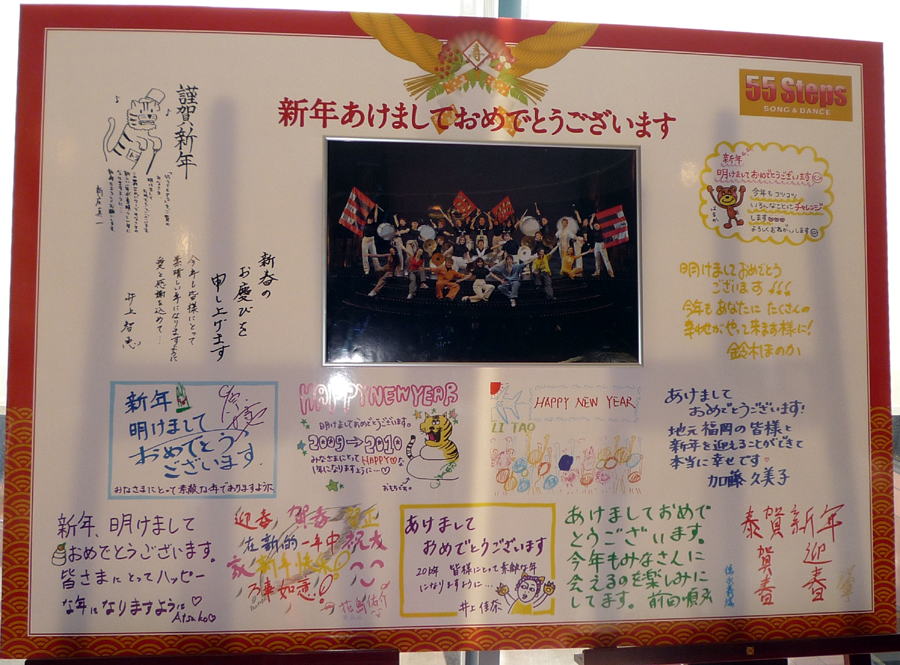 新年あけましておめでとうございます
55 Steps
SONG & DANCE
謹賀新年
新春の
お慶びを
申し上げます
今年も皆様にとって
素晴しい年になりますように
愛と感謝を込めて…
井上智恵
新年
明けましておめでとうございます
今年もコツコツ
いろんなことにチャレンジ
します
よろしくおねがいします
明けましておめでとう
ございます
今年もあなたにたくさんの
幸せがやって来ます様に!
鈴木ほのか
新年
明けまして
おめでとう
ございます
みなさまにとって素敵な年でありますように
HAPPY NEW YEAR
明けましておめでとうございます。
2009→2010
みなさまにとってHAPPY♡な
1年になりますように…♡
HAPPY NEW YEAR
LI TAO
あけまして
おめでとうございます!
地元福岡の皆様と
新年を迎えることができて
本当に幸せです♡
加藤久美子
新年、明けまして
おめでとうございます。
皆さまにとってハッピー
な年になりますように♡
Atsuko♡
迎春 賀春 賀正
在新的一年中祝友
家新年快乐!
万事如意!
あけまして
おめでとうございます
2010年 皆様にとって素敵な年
になりますように…
井上佳奈
あけましておめで
とうございます。
今年もみなさんに
会えるのを楽しみに
してます。
恭賀新年
迎春
賀春